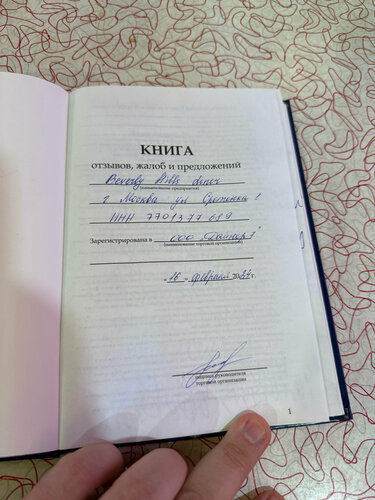 КНИГА
отзывов, жалоб и предложений
Beverly Hills diner
(наименование предприятия)
г Москва ул Сретенка 1
ИНН 7701377 619
Зарегистрирована в ООО "Дайнер 7"
(наименование торговой организации)
"16" февраля 2024 г.
подпись руководителя
торговой организации
1